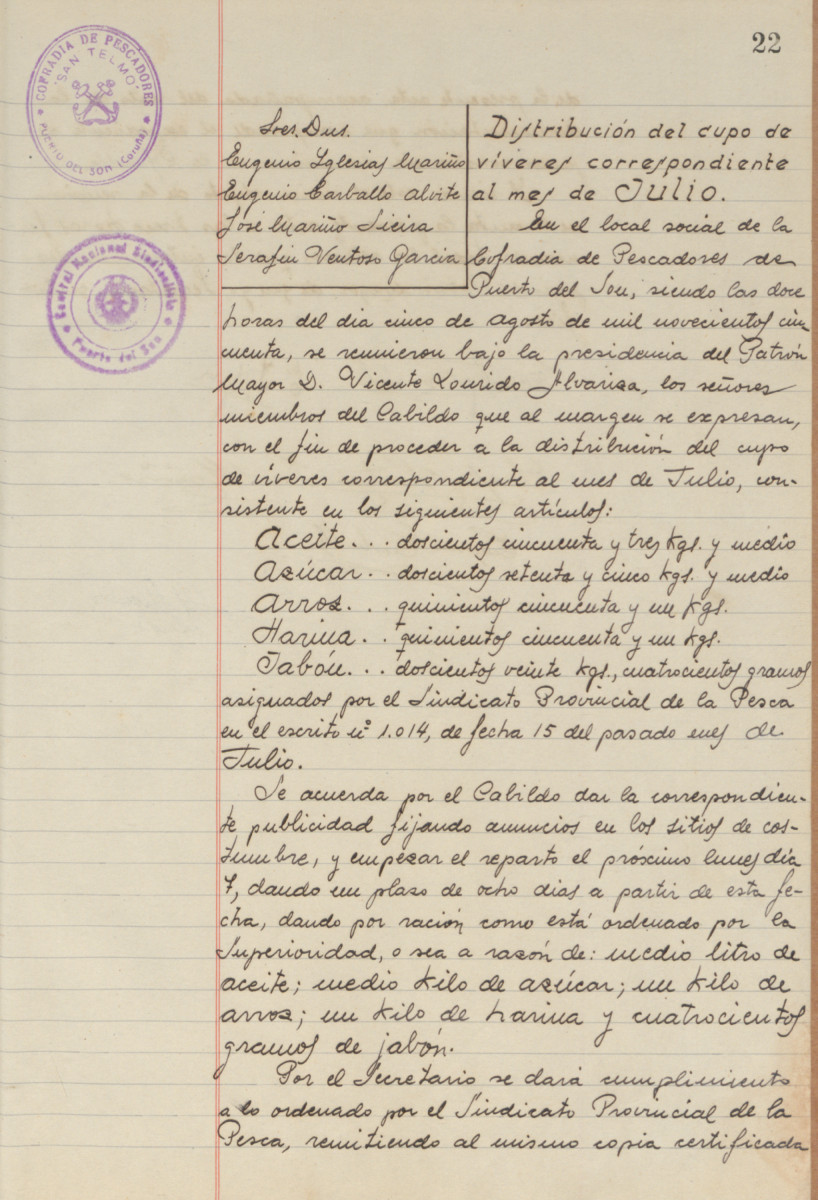 22
COFRADIA DE PESCADORES
"SAN TELMO"
PUERTO DEL SON (Coruña)
Central Nacional Sindicalista
Puerto del Son
Sres. Dns.
Eugenio Yglesias Mariño
Eugenio Carballo Alvite
José Mariño Sieira
Serafin Ventoso Garcia
Distribución del cupo de
víveres correspondiente
al mes de Julio.
En el local social de la
Cofradia de Pescadores de
Puerto del Son, siendo las doce
horas del dia cinco de agosto de mil novecientos cin-
cuenta, se reunieron bajo la presidencia del Patrón
Mayor D. Vicente Lourido Alvariza, los señores
miembros del Cabildo que al margen se expresan,
con el fin de proceder a la distribución del cupo
de víveres correspondiente al mes de Julio, con-
sistente en los siguientes artículos:
Aceite... doscientos cincuenta y tres kgs. y medio
Azúcar.. doscientos setenta y cinco kgs. y medio
Arroz... quinientos cincuenta y un kgs.
Harina.. quinientos cincuenta y un kgs.
Jabón... doscientos veinte kgs., cuatrocientos gramos
asignados por el Sindicato Provincial de la Pesca
en el escrito nº 1.014, de fecha 15 del pasado mes de
Julio.
Se acuerda por el Cabildo dar la correspondien-
te publicidad fijando anuncios en los sitios de cos-
tumbre, y empezar el reparto el próximo lunes dia
7, dando un plazo de ocho dias a partir de esta fe-
cha, dando por ración como está ordenado por la
Superioridad, o sea a razón de: medio litro de
aceite; medio kilo de azúcar; un kilo de
arroz; un kilo de harina y cuatrocientos
gramos de jabón.
Por el Secretario se dará cumplimiento
a lo ordenado por el Sindicato Provincial de la
Pesca, remitiendo al mismo copia certificada